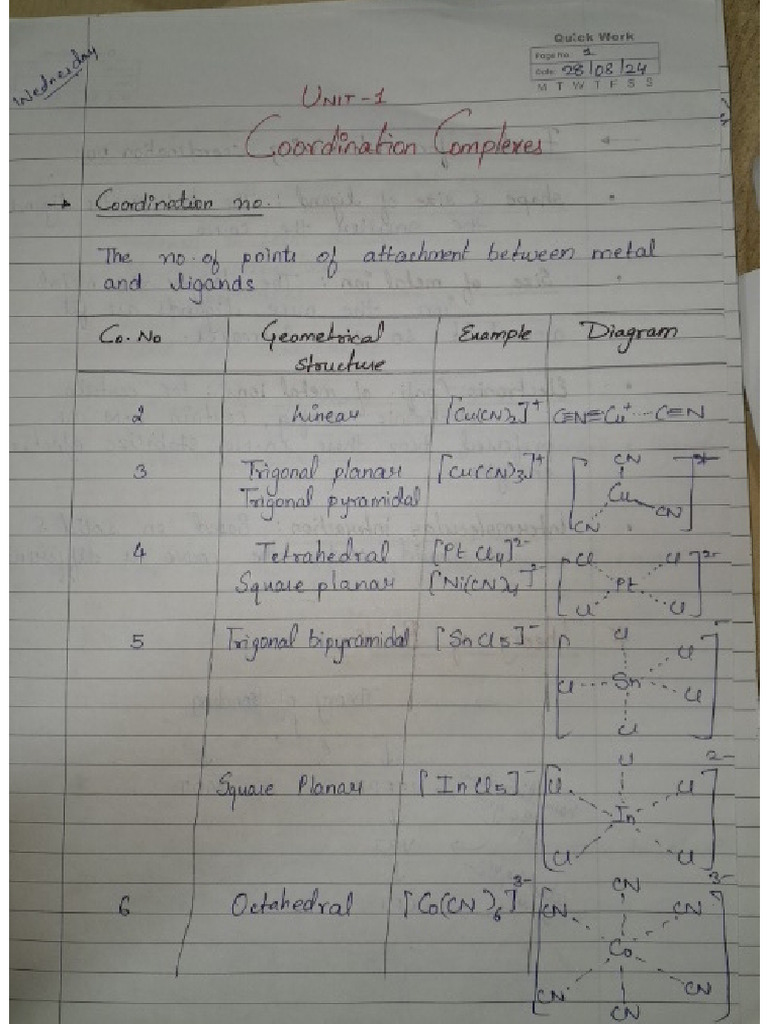 Wednesday
Quick Work
Page No. 1
Date: 28/08/24
M T W T F S S
UNIT-1
Coordination Complexes
→ Coordination no.
The no. of points of attachment between metal
and ligands
Co. No Geometrical structure Example Diagram
2 Linear [Cu(CN)2]+ C≡N≡Cu+...C≡N
3 Trigonal planar [Cu(CN)3]+
Trigonal pyramidal
CN
Cu
CN CN
4 Tetrahedral [PtCl4]2-
Square planar [Ni(CN)4]2-
Cl Cl 2-
Pt
Cl Cl
5 Trigonal bipyramidal [SnCl5]-
Cl -
Cl
Cl Sn Cl
Cl
Square Planar [InCl5]-
Cl 2-
Cl Cl
In
Cl Cl
6 Octahedral [Co(CN)6]3-
CN 3-
CN CN
Co
CN CN
CN